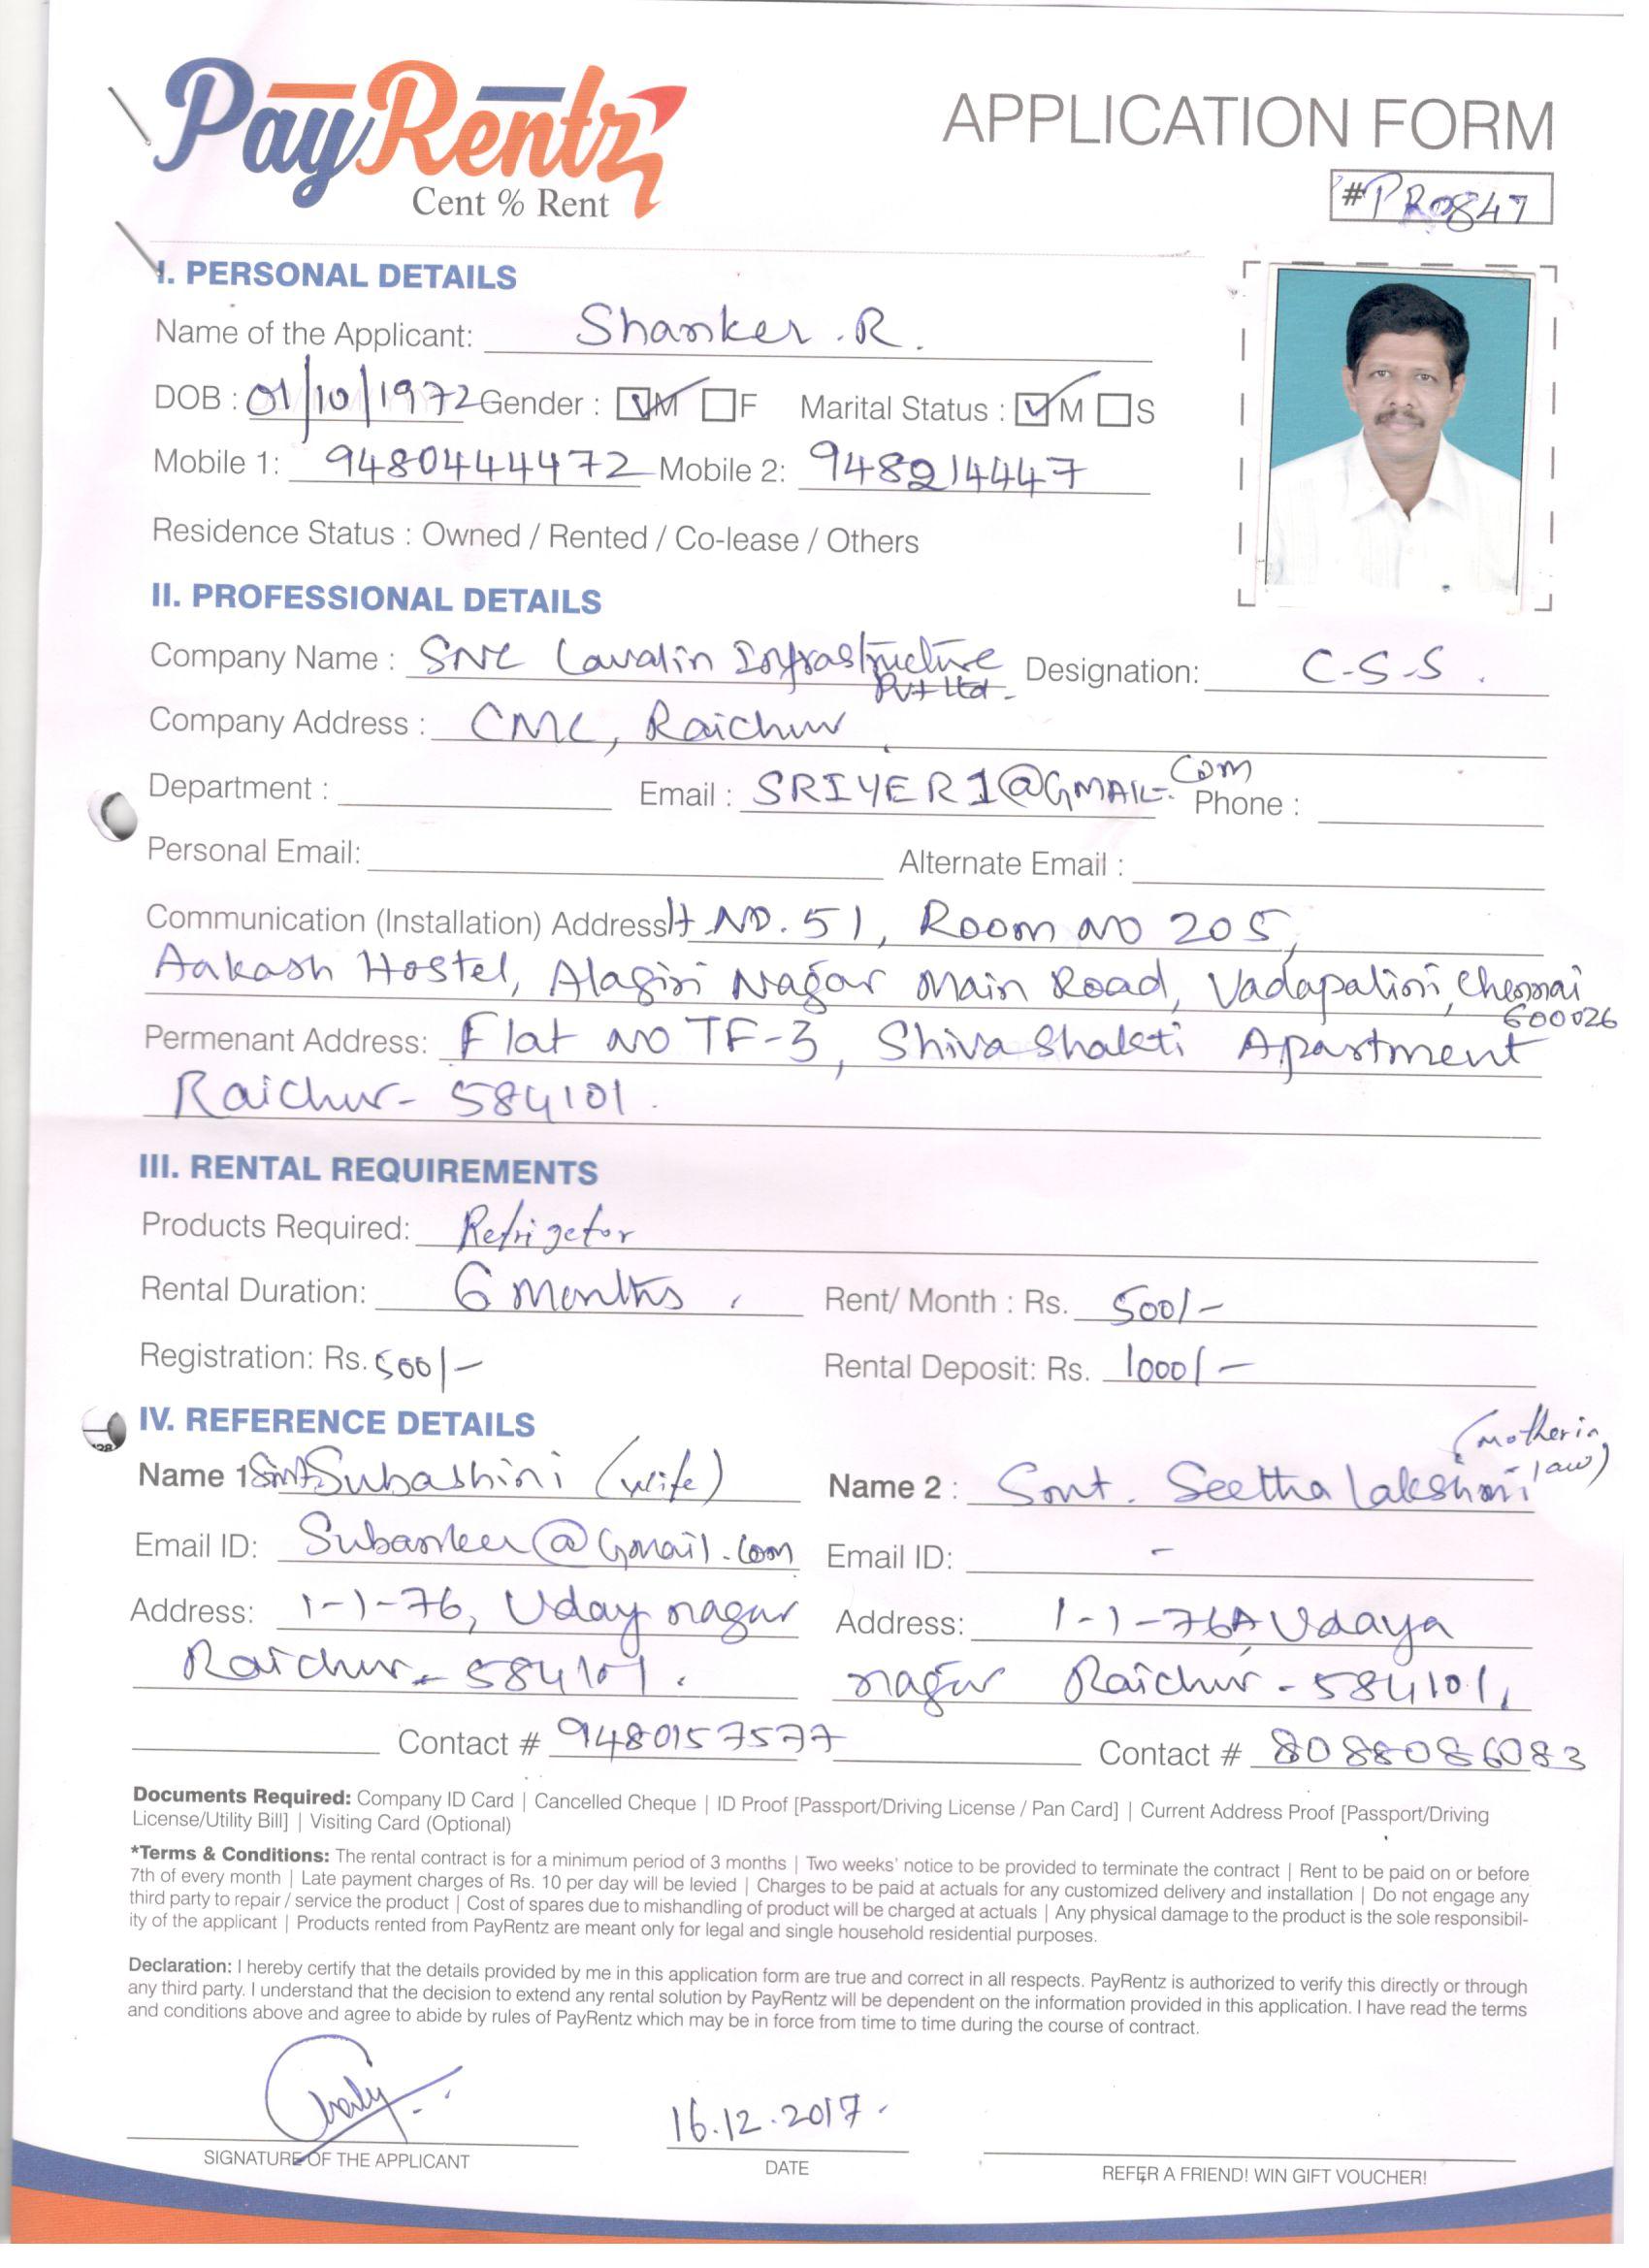 PayRentz
Cent % Rent
APPLICATION FORM
#PR0847
I. PERSONAL DETAILS
Name of the Applicant: Shanker .R.
DOB : 01/10/1972 Gender : M F Marital Status : M S
Mobile 1: 9480444472 Mobile 2: 948214447
Residence Status : Owned / Rented / Co-lease / Others
II. PROFESSIONAL DETAILS
Company Name : SNC Lavalin Infrastructure Pvt Ltd. Designation: C-S-S.
Company Address : CMC, Raichur
Department : Email : SRIYER1@GMAIL.COM Phone :
Personal Email: Alternate Email :
Communication (Installation) Address H NO. 51, Room no 205,
Aakash Hostel, Alagiri Nagar Main Road, Vadapalini, Chennai
600026
Permenant Address: Flat no TF-3, Shiva Shakti Apartment
Raichur - 584101.
III. RENTAL REQUIREMENTS
Products Required: Refrigetor
Rental Duration: 6 months. Rent/ Month : Rs. 500/-
Registration: Rs. 500/- Rental Deposit: Rs. 1000/-
IV. REFERENCE DETAILS
Name 1 Smt. Subashini (wife) Name 2 : Smt. Seetha lakshmi (mother in law)
Email ID: Subanker@Gmail.com Email ID: -
Address: 1-1-76, Uday nagar Address: 1-1-76A Udaya
Raichur - 584101. nagar Raichur - 584101,
Contact # 9480157577 Contact # 8088086083
Documents Required: Company ID Card | Cancelled Cheque | ID Proof [Passport/Driving License / Pan Card] | Current Address Proof [Passport/Driving
License/Utility Bill] | Visiting Card (Optional)
*Terms & Conditions: The rental contract is for a minimum period of 3 months | Two weeks' notice to be provided to terminate the contract | Rent to be paid on or before
7th of every month | Late payment charges of Rs. 10 per day will be levied | Charges to be paid at actuals for any customized delivery and installation | Do not engage any
third party to repair / service the product | Cost of spares due to mishandling of product will be charged at actuals | Any physical damage to the product is the sole responsibil-
ity of the applicant | Products rented from PayRentz are meant only for legal and single household residential purposes.
Declaration: I hereby certify that the details provided by me in this application form are true and correct in all respects. PayRentz is authorized to verify this directly or through
any third party. I understand that the decision to extend any rental solution by PayRentz will be dependent on the information provided in this application. I have read the terms
and conditions above and agree to abide by rules of PayRentz which may be in force from time to time during the course of contract.
16.12.2017.
SIGNATURE OF THE APPLICANT DATE REFER A FRIEND! WIN GIFT VOUCHER!